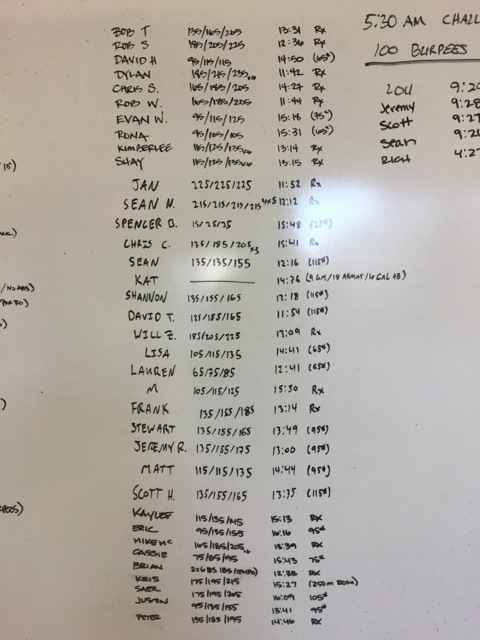 BOB T 135/165/205 13:31 Rx
ROB S 185/205/225 12:36 Rx
DAVID H 95/115/115 14:50 (65#)
DYLAN 11:42 Rx
CHRIS S. 165/185/205 14:27 Rx
ROB W. 165/185/205 11:44 Rx
EVAN W. 95/115/125 15:18 (75#)
RONA 95/105/105 15:31 (65#)
KIMBERLEE 13:14 Rx
SHAY 15:15 Rx
JAN 225/225/225 11:52 Rx
SEAN N. 215/215/215/215 12:12 Rx
SPENCER B. 15/25/35 15:48
CHRIS C. 135/185/205 x3 15:41 Rx
SEAN 135/135/155 12:16 (115#)
KAT 14:26
SHANNON 135/155/165 13:18 (115#)
DAVID T. 135/155/165 11:54 (115#)
WILL Z. 185/205/225 13:09 Rx
LISA 105/115/135 14:41 (65#)
LAUREN 65/75/85 12:41 (65#)
M 105/115/125 15:50 Rx
FRANK 135/155/185 13:14 Rx
STEWART 135/155/165 13:49 (95#)
JEREMY R. 135/155/175 13:00 (95#)
MATT 115/115/135 14:44 (95#)
SCOTT H. 135/155/165 13:35 (115#)
KAYLEE 115/135/145 15:13 RX
ERIC 95/135/155 16:16 95#
MIKE MC 165/185/205 13:39 RX
CASSIE 75/85/95 15:43 75#
BRIAN 12:38 RX
KRIS 175/195/215 15:27 (250m ROW)
SAER 175/195/205 16:09 105#
JUSTIN 95/135/155 13:41 95#
PETER 135/185/195 14:46 RX
5:30 AM CHALL
100 BURPEES
LOU 9:20
Jeremy 9:28
Scott 9:27
Sean
RICH 4:27
15)